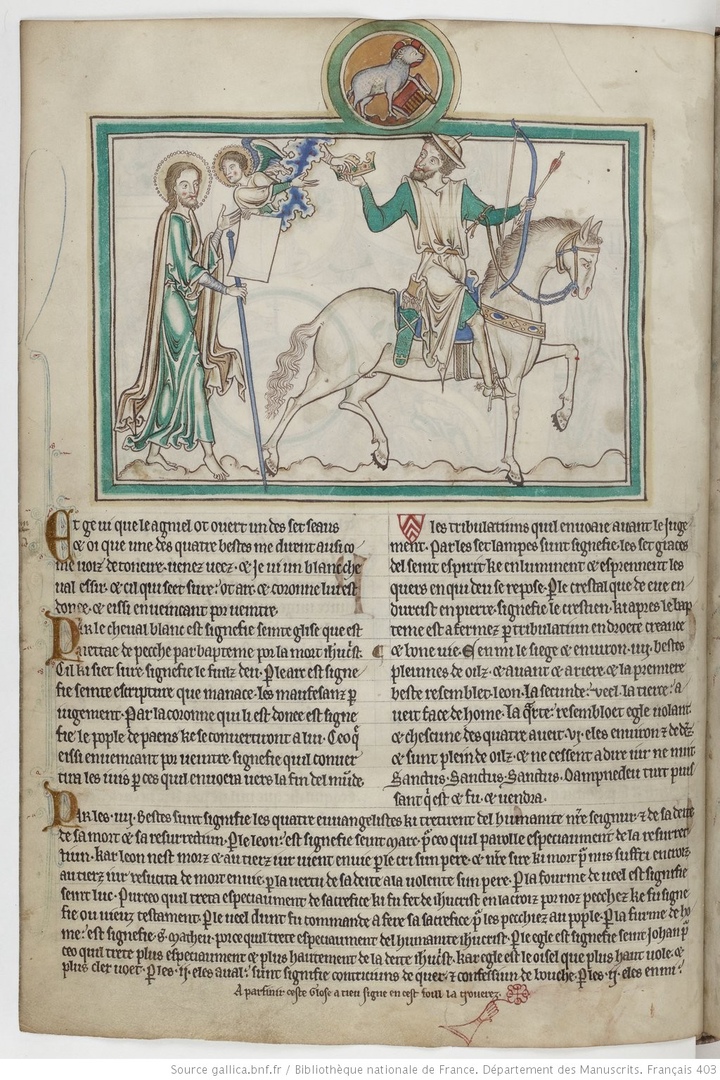 Et ge vi que le agniel ot overt un des set seaus
& oi que une des quatre bestes me dirent ausi co
me voiz de toneire. venez veez. & je vi un blanc che
val essir. & cil qui seet sure: ot arc. & coronne lui est
donee. & eissi en veincant por veintre.
Par le cheval blanc est signefie seinte glise que est
nettae de pecche par bapteme por la mort ihu crist.
Cil ki siet sure signefie le fiulz deu. Ple arc est signe
fie seinte escripture que manace. les maufesanz p
iugement. Par la coronne qui li est donee est signe
fie. le pople de paens ke se convertiront a lui. Ceo q
eissi en veincant por veintre. signefie quil conver
tira les uns p ces quil envoera vers la fin del munde.
les tribulatiuns quil envoae avant le juge
ment. Par les set lampes sunt signefie. les set graces
del seint espirit ke enluminent & espernent les
quers en qui deu se repose. Ple crestal que de eve en
durcist en pierre. signefie le crestien. ki apres le bap
teme est afermez p tribulatiun en droete creance
& bone vie. En mi le siege & environ. iiij. bestes
pleinnes de oilz. & avant & ariere. & la premiere
beste resemblet leon. la secunde: veel. la tierce: a
veit face de home. la qrte: resembloet egle volant.
& chescune des quatre aveit. vj. eles environ z dedez
& sunt plein de oilz. & ne cessent a dire iur ne nuit
Sanctus. Sanctus. Sanctus. Dampnedeu tut puis
sant q est & fu. & vendra.
Par les. iiij. bestes sunt signifie les quatre evvangelistes ki treterent del humanite nre seignur z de sa deite
de sa mort & sa resurrectiun. Ple leon: est signefie seint Marc. p ceo quil parolle especiaument de la resurrec
tiun. kar leon nest morz & au tierz iur vient en vie p le cri sun pere. & nre sire ki mort p nus suffri en croiz
au tierz iur resuscita de mort en vie. p la vertu de sa deite a la volente sun pere. Pla fourme de veel est signifie
seint luc. Pur ceo quil treta especiaument de sacrefice ki fu fet de ihu crist en la croiz por noz pecchez ke fu signe
fie ou vieuz testament. Ple veel dunt fu commande a fere sa sacrefice p les pecchiez au pople. Pla furme de ho
me: est signefie s. Matheu. por ce quil trete especiaument del humanite ihu crist. Ple egle est signefie seint Johan p
ceo quil trete plus especiaument & plus hautement de la deite ihu crist. kar egle est le oisel que plus haut vole. &
plus cler voet. Ples. ij. eles aval: sunt signifie contriciuns de quer. z confessiun de bouche. Ples. ij. eles en mi:
A parfinir ceste glose a tieu signe en cest foill la troverez.
Source gallica.bnf.fr / Bibliothèque nationale de France. Département des Manuscrits. Français 403